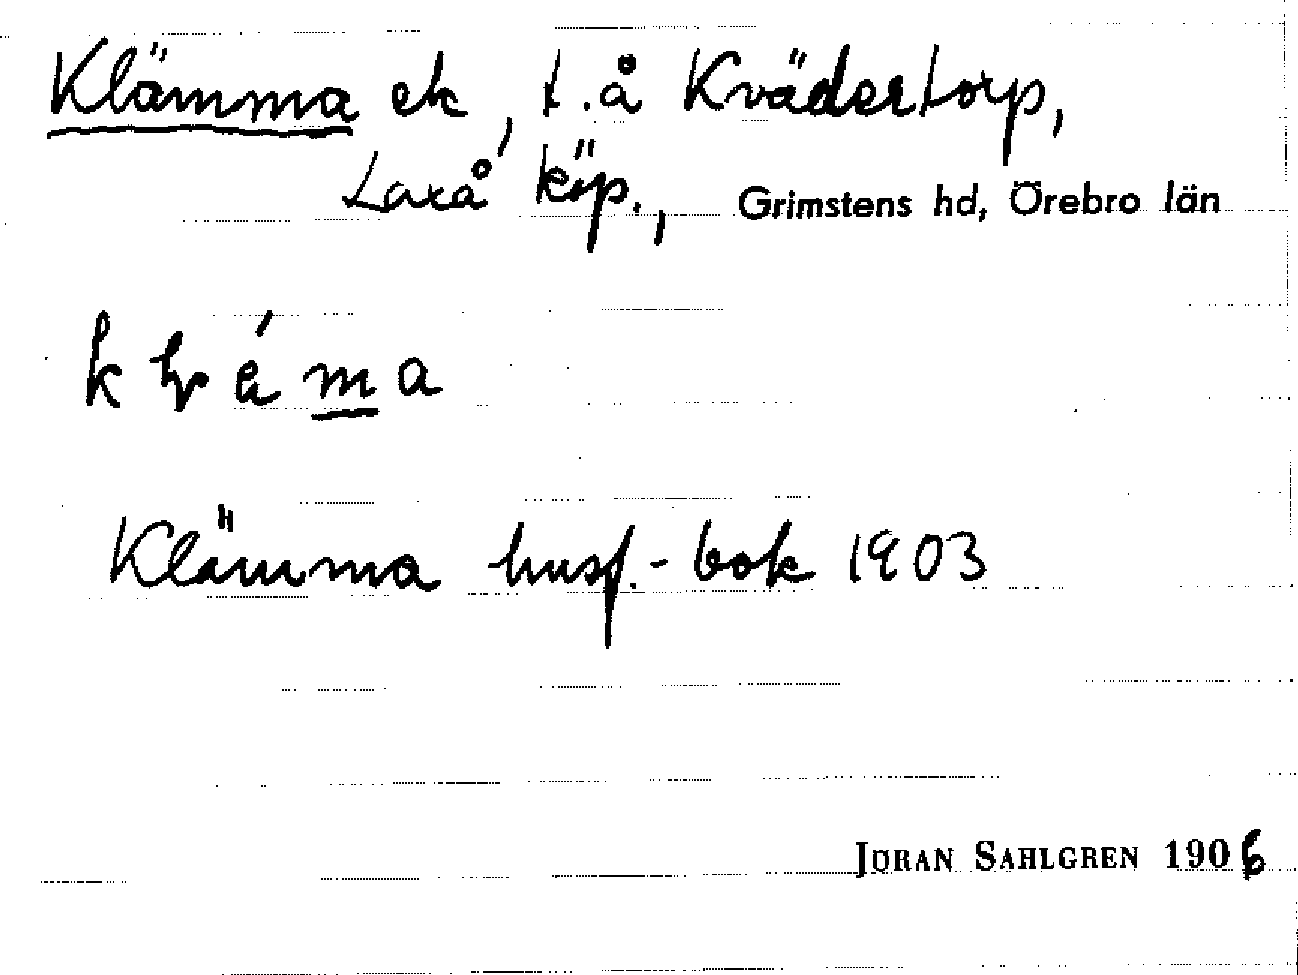 Klämma ek, t.å Kvädertorp,
Laxå köp., Grimstens hd, Örebro län
Klämma husf.-bok 1903
JÖRAN SAHLGREN 1906